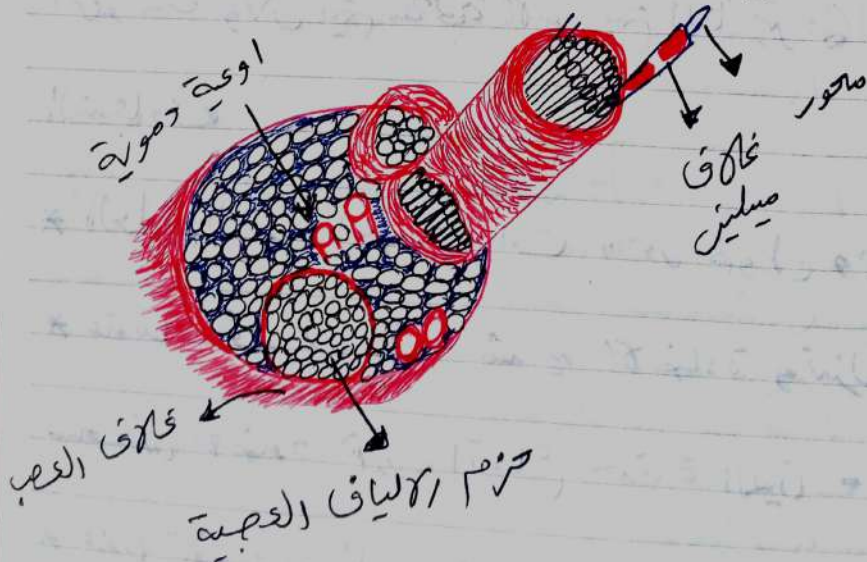 اوعية دموية
محور
غلاف
ميلين
غلاف العصب
حزم الالياف العصبية